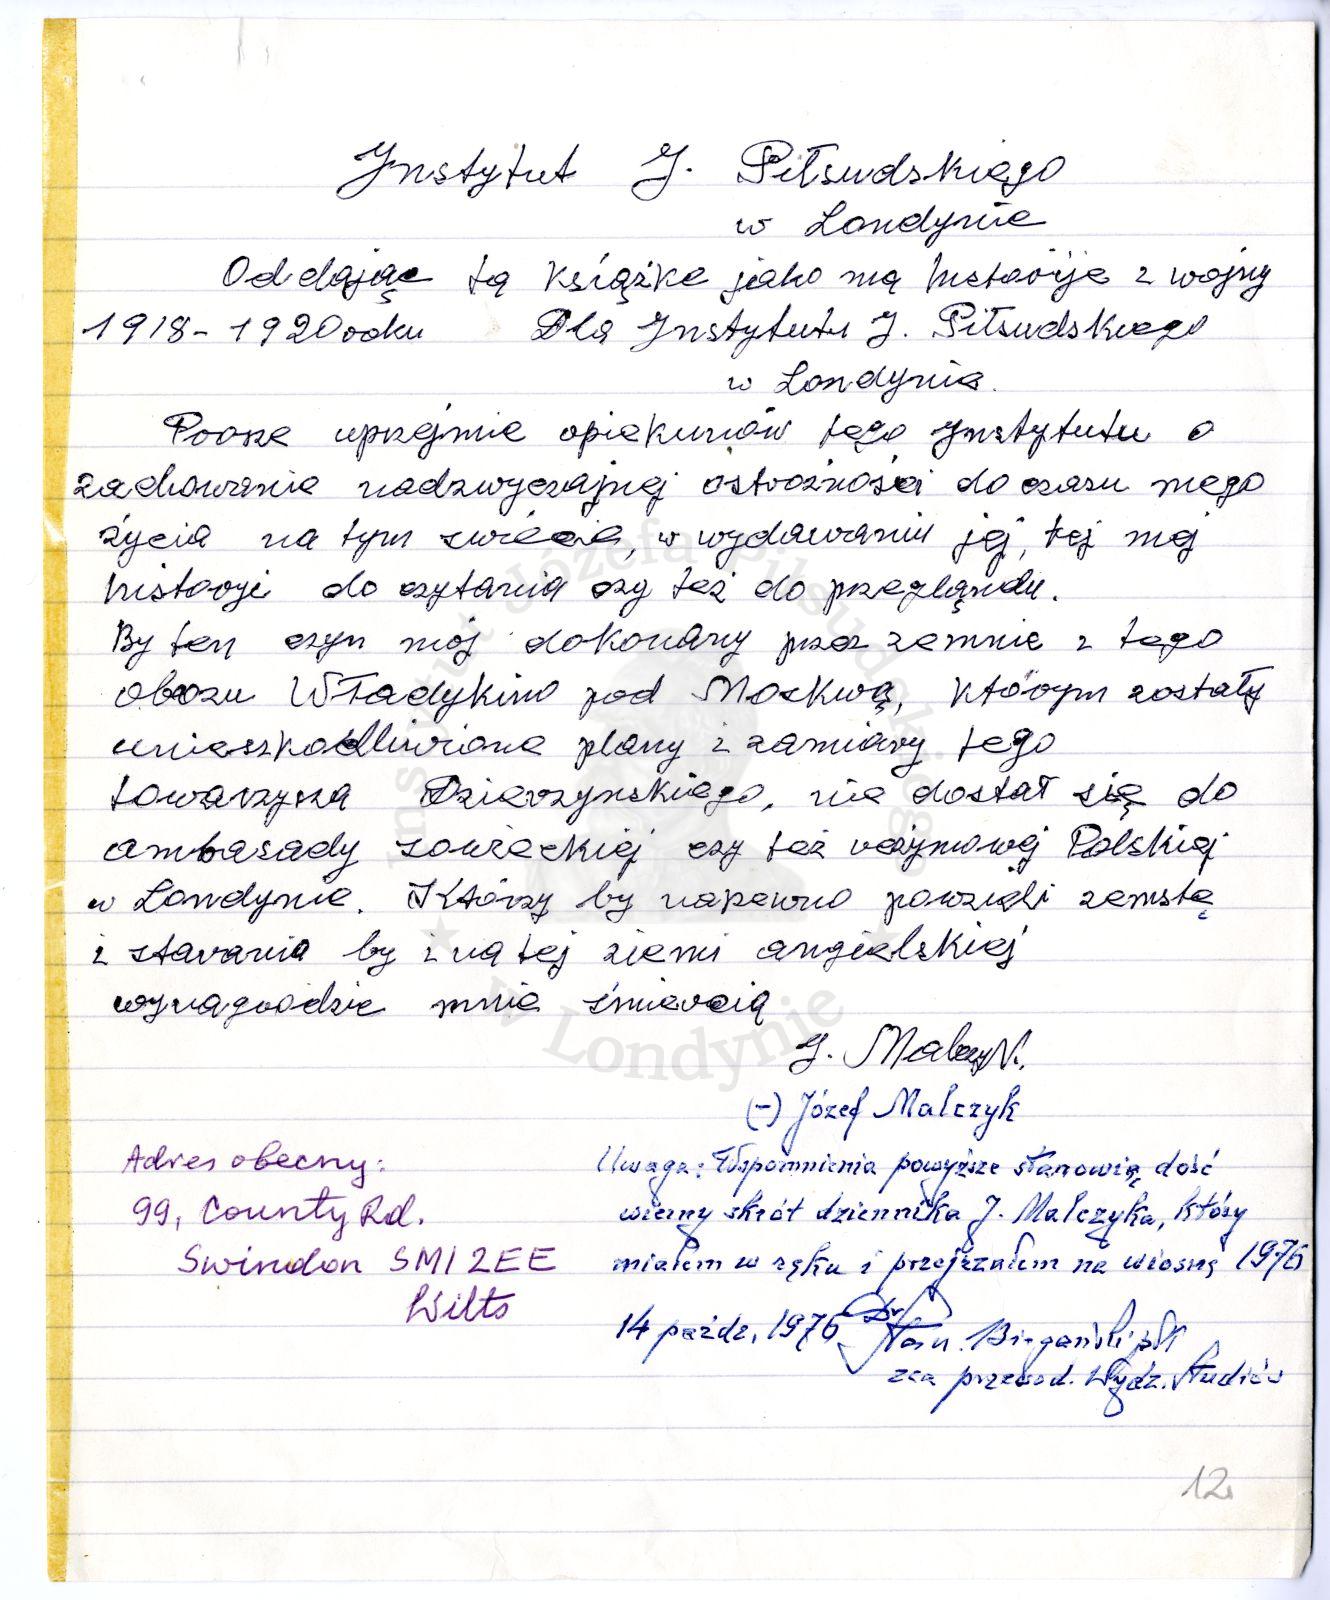 Instytut J. Piłsudskiego
w Londynie
Oddając tą książke jako mą histovije z wojny
1918-1920 roku Dla Instytutu J. Piłsudskiego
w Londynie.
Prosze uprzejmie opiekunów tego Instytutu o
zachowanie nadzwyczajnej ostrożności do czasu mego
życia na tym świecie, w wydawaniu jej, tej mej
historyi do czytania czy też do przeglądu.
By ten czyn mój dokonany przez zemnie z tego
obozu Władykino pod Moskwą, którym zostały
unieszkodliwione plany i zamiary tego
towarzysza Dzierzynskiego, nie dostał się do
ambasady sowieckiej czy też reżymowej Polskiej
w Londynie. Którzy by napewno powzieli zemstę
i starania by i na tej ziemi angielskiej
wynagrodzic mnie śmiercią
J. Malczyk.
(-) Józef Malczyk
Adres obecny:
99, County Rd.
Swindon SM1 2EE
Wilts
Uwaga: Wspomnienia powyższe stanowią dość
wierny skrót dziennika J. Malczyka, który
miałem w ręku i przejrzałem na wiosnę 1976
14 paźdz, 1976 Dr Stan. Biegański płk
zca przewod. Wydz. Studiów
12
Instytut Józefa Piłsudskiego w Londynie